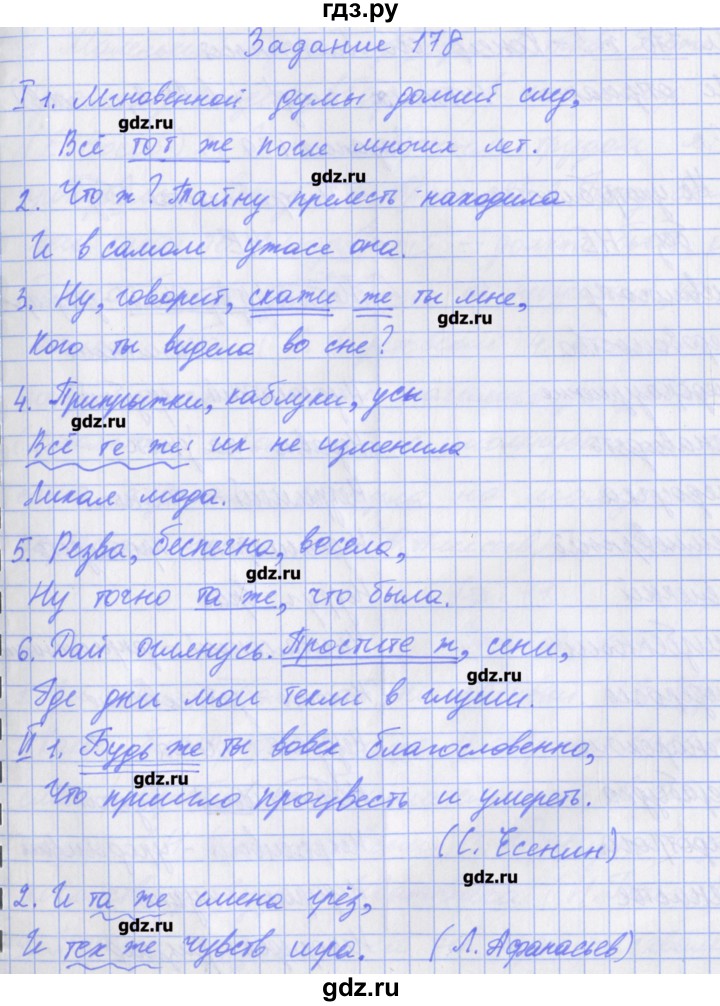 гдз.ру
Задание 178
I 1. Мгновенной думы долгий след,
gdz.ru
Всё тот же после многих лет.
gdz.ru
2. Что ж? Тайну прелесть находила
И в самом ужасе она.
3. Ну, говорит, скажи же ты мне,
gdz.ru
Кого ты видела во сне?
4. Припрыжки, каблуки, усы
gdz.ru
Всё те же: их не изменила
Лихая мода.
5. Резва, беспечна, весела,
gdz.ru
Ну точно та же, что была.
6. Дай оглянусь. Простите ж, сени,
gdz.ru
Где дни мои текли в глуши.
II 1. Будь же ты вовек благословенно,
gdz.ru
Что пришло процвесть и умереть.
(С. Есенин)
gdz.ru
2. И та же смена грёз,
gdz.ru
И тех же чувств игра. (Л. Афанасьев)
gdz.ru